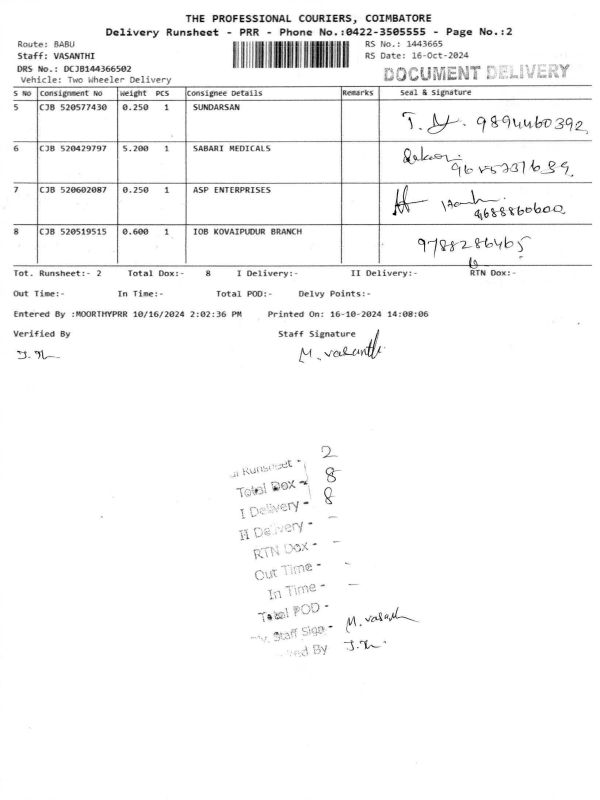 THE PROFESSIONAL COURIERS, COIMBATORE
Delivery Runsheet - PRR - Phone No.:0422-3505555 - Page No.:2
Route: BABU RS No.: 1443665
Staff: VASANTHI RS Date: 16-Oct-2024
DRS No.: DCJB144366502 DOCUMENT DELIVERY
Vehicle: Two Wheeler Delivery
S No Consignment No Weight PCS Consignee Details Remarks Seal & Signature
5 CJB 520577430 0.250 1 SUNDARSAN 9894460392
6 CJB 520429797 5.200 1 SABARI MEDICALS
7 CJB 520602087 0.250 1 ASP ENTERPRISES 9688860600
8 CJB 520519515 0.600 1 IOB KOVAIPUDUR BRANCH 9788286465
Tot. Runsheet:- 2 Total Dox:- 8 I Delivery:- II Delivery:- RTN Dox:-
Out Time:- In Time:- Total POD:- Delvy Points:-
Entered By :MOORTHYPRR 10/16/2024 2:02:36 PM Printed On: 16-10-2024 14:08:06
Verified By Staff Signature
M. Vasanthi
Runsheet - 2
Total Dox - 8
I Delivery - 8
II Delivery - -
RTN Dox - -
Out Time - -
In Time - -
Total POD -
Staff Sign - M. Vasanthi
By